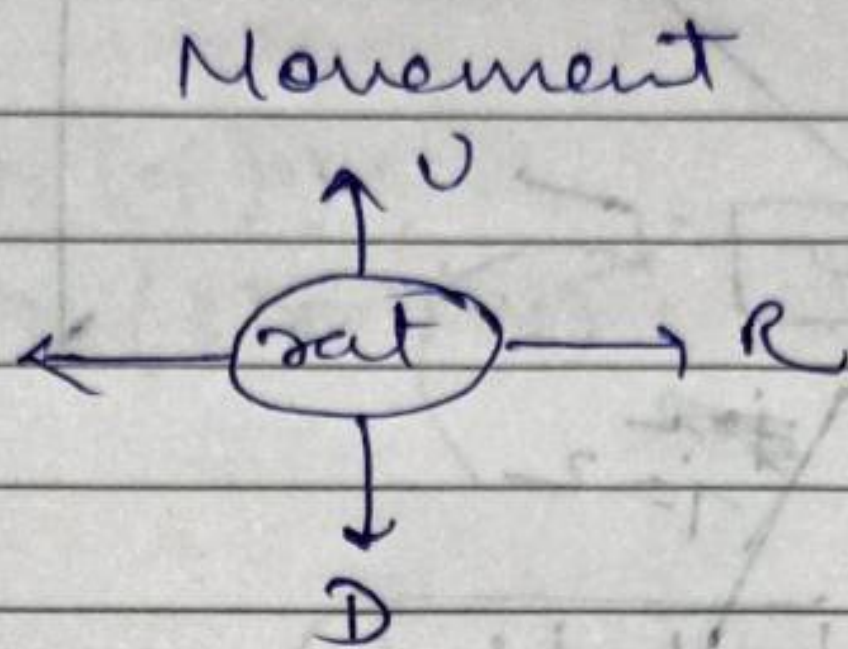 Movement
U
rat R
D